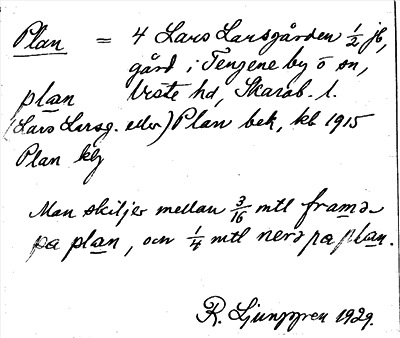 Plan = 4 Lars Larsgården 1/2 jb,
gård i Tengene by o sn,
plan Viste hd, Skarab. l.
(Lars Larsg. eller) Plan bek, kb 1915
Plan kbg
Man skiljer mellan 3/16 mtl framå
pa plan, och 1/4 mtl nerɔ pa plan.
R. Ljunggren 1929.